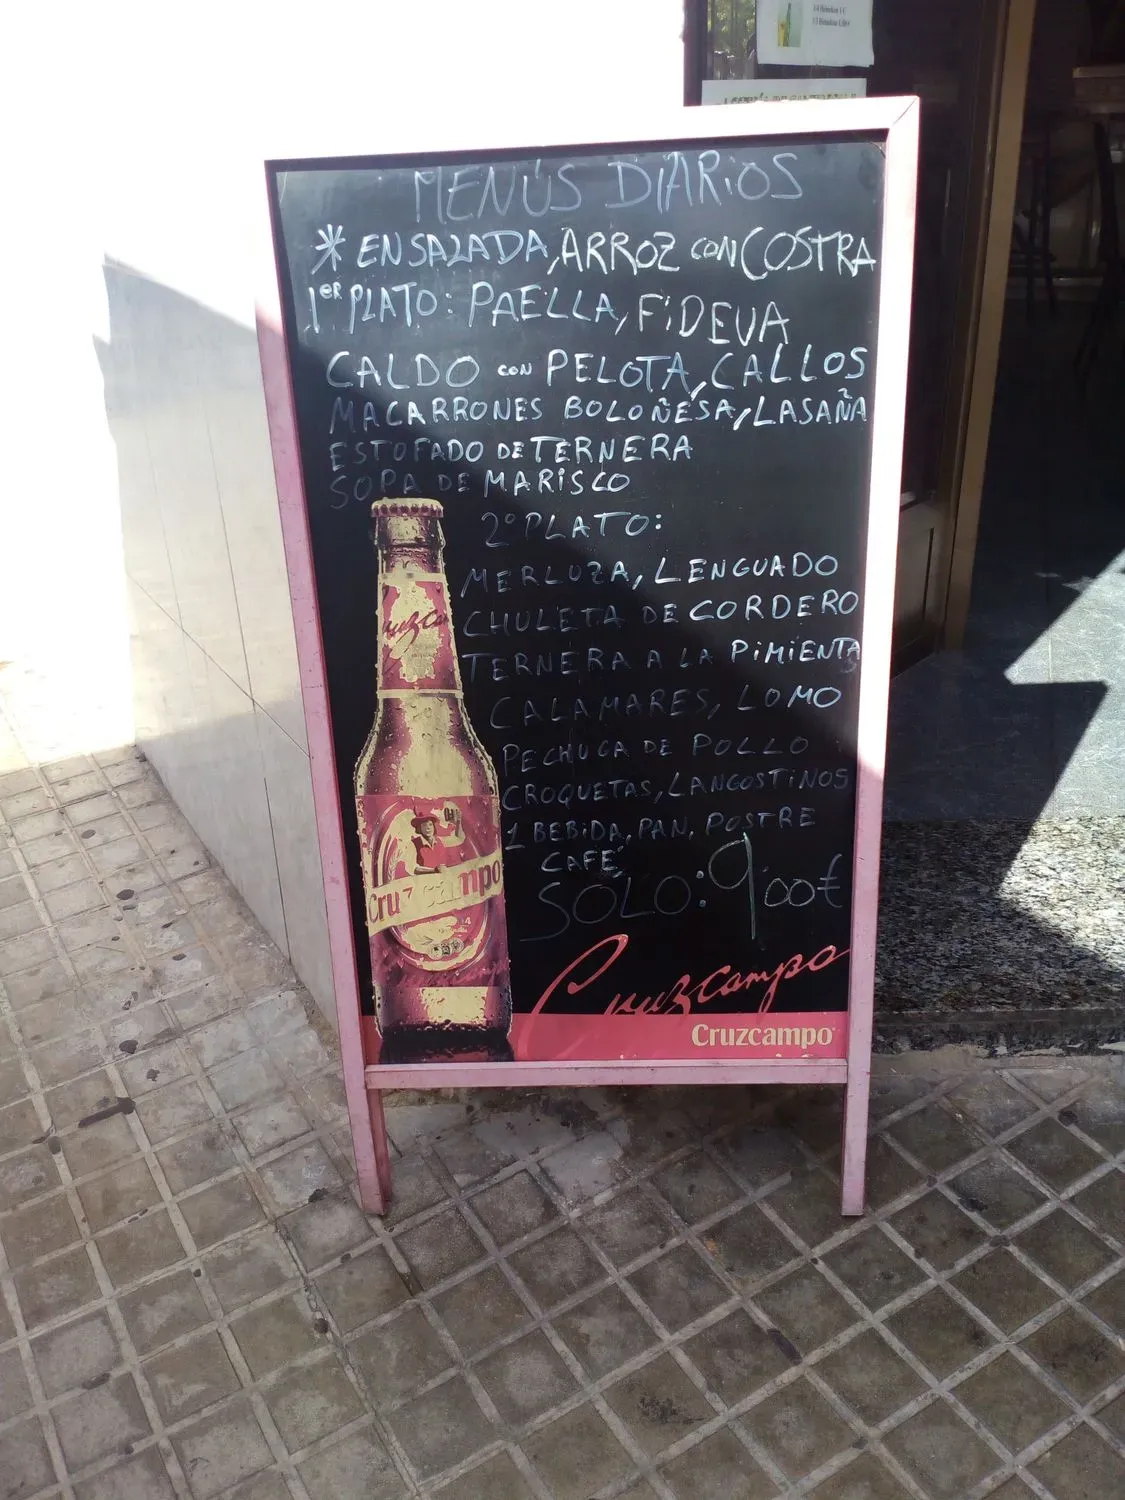 MENÚS DIARIOS
* ENSALADA, ARROZ CON COSTRA
1ER PLATO: PAELLA, FIDEUA
CALDO CON PELOTA, CALLOS
MACARRONES BOLOÑESA, LASAÑA
ESTOFADO DE TERNERA
SOPA DE MARISCO
2º PLATO:
MERLUZA, LENGUADO
CHULETA DE CORDERO
TERNERA A LA PIMIENTA
CALAMARES, LOMO
PECHUGA DE POLLO
CROQUETAS, LANGOSTINOS
1 BEBIDA, PAN, POSTRE
CAFÉ
SOLO: 9'00€
Cruzcampo
Cruzcampo
Cruzcampo